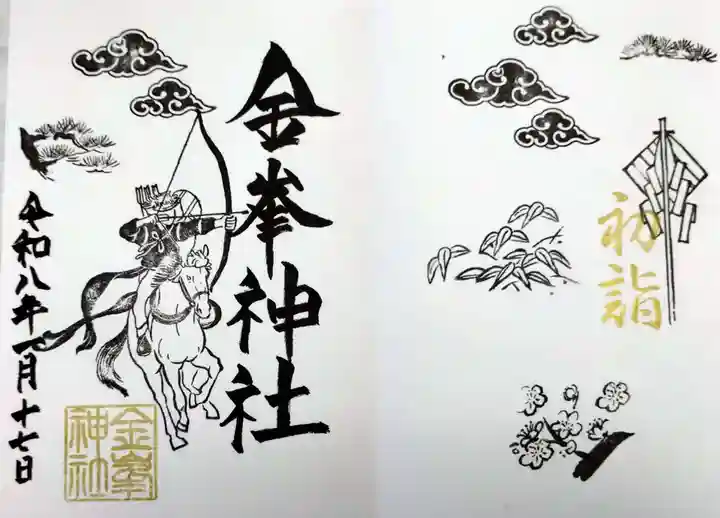 初詣
金峯神社
令和八年一月十七日
金峯神社